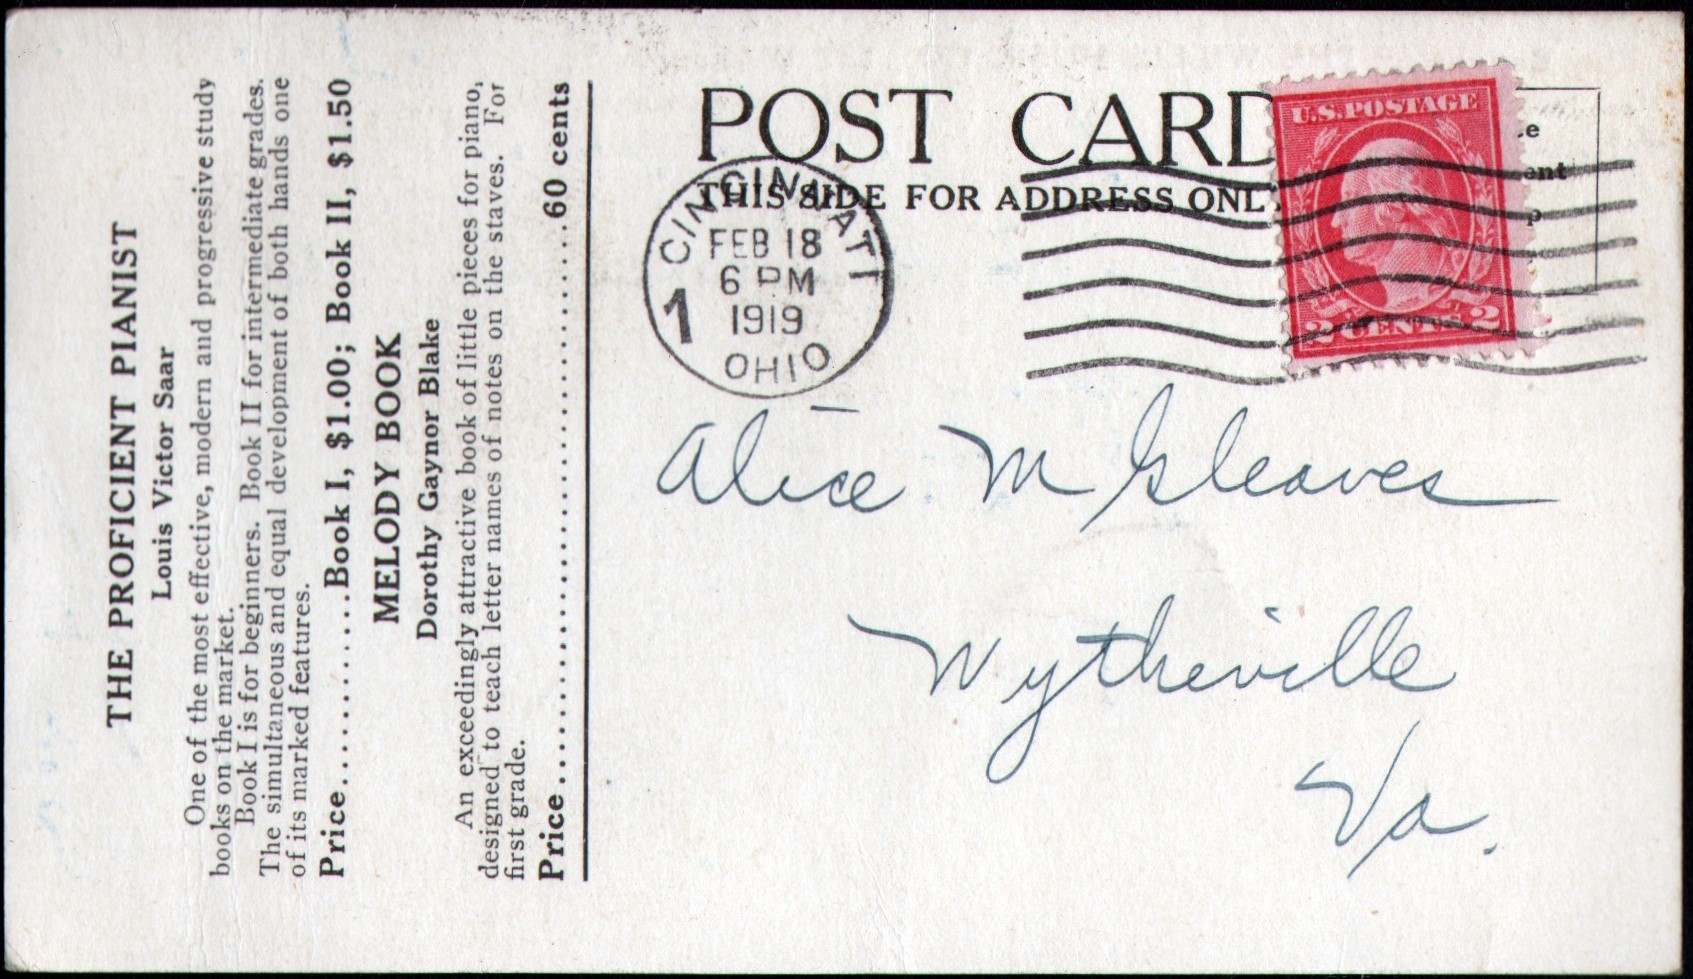 THE PROFICIENT PIANIST
Louis Victor Saar
One of the most effective, modern and progressive study
books on the market.
Book I is for beginners. Book II for intermediate grades.
The simultaneous and equal development of both hands one
of its marked features.
Price............Book I, $1.00; Book II, $1.50
MELODY BOOK
Dorothy Gaynor Blake
An exceedingly attractive book of little pieces for piano,
designed to teach letter names of notes on the staves. For
first grade.
Price........................................60 cents
POST CARD
THIS SIDE FOR ADDRESS ONL
CINCINNATI
FEB 18
6 PM
1
1919
OHIO
U.S. POSTAGE
2 CENTS 2
Alice M Gleaves
Wytheville
Va.